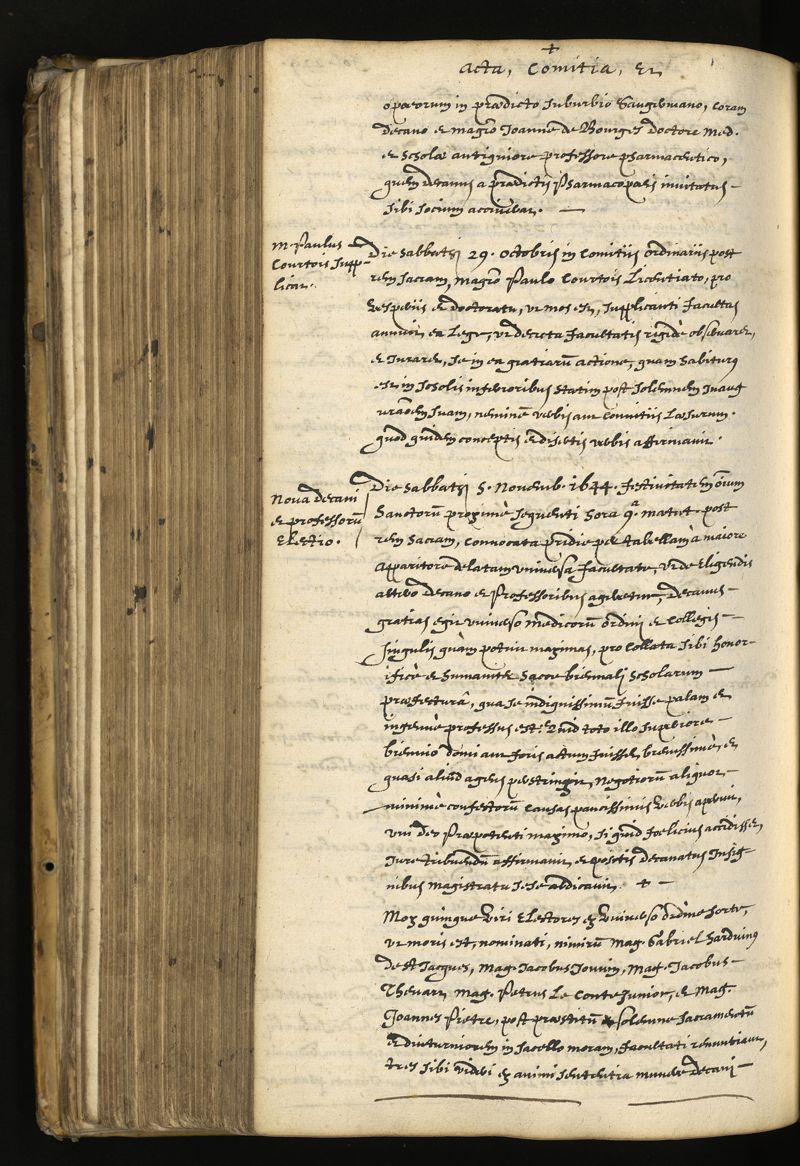 +
Acta, Comitia, et
operorum in praedicto suburbio Sangermano, coram
decano et magro Joanne de Bourges doctore med.
et scholae antiquiore professore pharmaceutico,
quem decanus a praedictis Pharmacopoeis invitatus
sibi socium acciverat. —
M. Paulus
Courtois supp-
licat.
Die Sabbathi 29. Octobris in Comitiis ordinariis post
rem sacram, magro Paulo Courtois Licentiato, pro
vesperiis et doctoratu, ut mos est, supplicanti facultas
annuit, ea lege, ut decreta facultatis rigide observaret,
et juraret, se in ea gratiarū actione, quam habiturus
est in scholis inferioribus statim post solemnem inaug
urāōem suam, neminē verbis aut convitiis laesurum.
quod quidem conceptis et disertis verbis affirmavit.
Nova decani
et professorū
Electio.
Die Sabbathi 5. Novemb. 1644. festivitatem ōium
Sanctorū proximè sequenti hora 9ª. matut. post
rem sacram, convocata pridie per tabellam à maiore
apparitore delatam universa facultate, ut de eligendis
altero decano et Professoribus ageretur, decanus —
gratias egit universo medicorū ordini et collegis —
singulis quàm potuit maximas, pro collata sibi honor-
ificè et humaniter hacce biennali scholarum —
praefecturâ, qua se indignissimū fuisse palam et
ingenuè professus est: Quid toto illo superiore —
biennio domi aut foris actum fuisset, brevissimè, et
quasi aliud agens perstringit, Negotiorū aliquot —
minimè confectorū causas paucissimis verbis aperuit,
uni deo Praepotenti maximo, si quid foelicius accidisset,
jure tribuendū affirmavit, et positis decanatus insig-
nibus magistratu sese abdicavit. + —
Mox quinque viri Electores ex universo ordine sorte,
ut moris est, nominati, nimirū Mag. Gabriel Harduinus
de St Jacques, Mag. Jacobus Jouvin, Mag. Jacobus —
Thevart, Mag. Petrus Le Conte Junior, et Mag.
Joannes Pietre, post praestitū solemne sacramentū
et diuturniorem in sacello moram, facultati renuntiant,
tres sibi videri ex animi sententia munere decani —